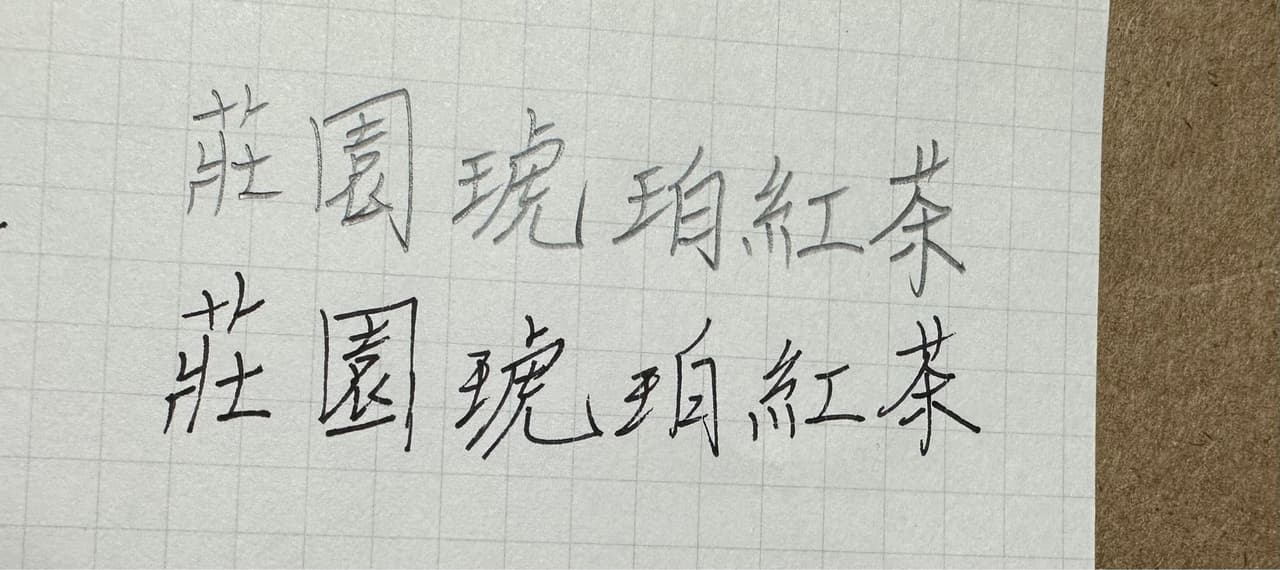 莊園琥珀紅茶
莊園琥珀紅茶